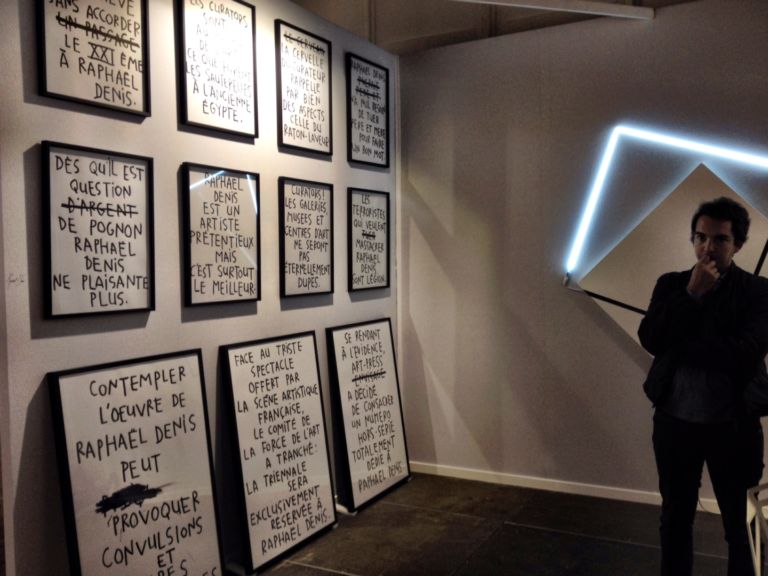 SANS ACCORDER
UN PASSAGE
LE XXI ÈME
À RAPHAËL
DENIS.
LES CURATORS
SONT
CE QUE
LES SAUTERELLES
À L'ANCIENNE
ÉGYPTE.
LE CERVEAU
LA CERVELLE
DU CURATEUR
RAPPELLE
PAR BIEN
DES ASPECTS
CELLE DU
RATON-LAVEUR
RAPHAËL DENIS
N'A NUL BESOIN
DE TUER
PÈRE ET MÈRE
POUR FAIRE
UN BON MOT
DÈS QU'IL EST
QUESTION
D'ARGENT
DE POGNON
RAPHAËL
DENIS
NE PLAISANTE
PLUS.
RAPHAËL
DENIS
EST UN
ARTISTE
PRÉTENTIEUX
MAIS
C'EST SURTOUT
LE MEILLEUR.
CURATORS!
LES GALERIES,
MUSÉES ET
CENTRES D'ART
NE SERONT
PAS
ÉTERNELLEMENT
DUPES.
LES
TERRORISTES
QUI VEULENT
TUER
MASSACRER
RAPHAËL
DENIS
SONT LÉGION.
CONTEMPLER
L'OEUVRE DE
RAPHAËL DENIS
PEUT
PROVOQUER
CONVULSIONS
ET
FACE AU TRISTE
SPECTACLE
OFFERT PAR
LA SCÈNE ARTISTIQUE
FRANÇAISE,
LE COMITÉ DE
LA FORCE DE L'ART
A TRANCHÉ:
LA TRIENNALE
SERA
EXCLUSIVEMENT
RÉSERVÉE À
RAPHAËL DENIS.
SE RENDANT
À L'ÉVIDENCE,
ART-PRESS
ENVISAGE
A DÉCIDÉ
DE CONSACRER
UN NUMÉRO
HORS-SÉRIE
TOTALEMENT
DÉDIÉ À
RAPHAËL DENIS.